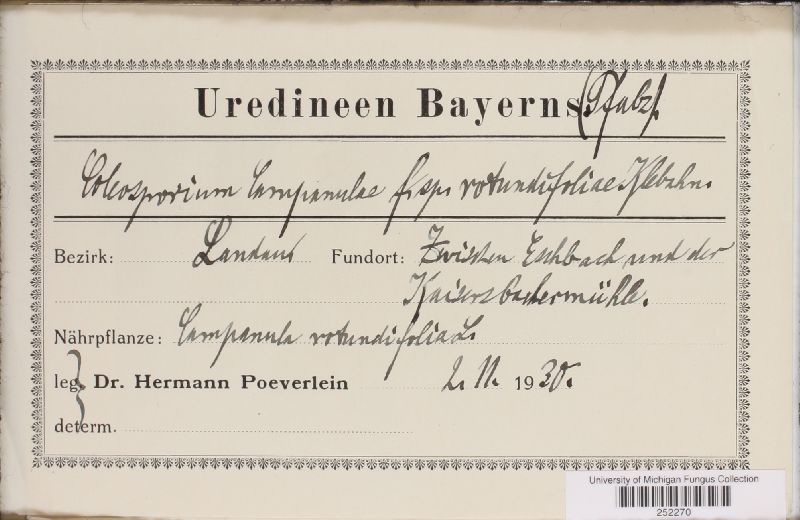 Uredineen Bayerns. (Pfalz).
Coleosporium Campanulae f. sp. rotundifoliae Klebahn.
Bezirk: Landau Fundort: Zwischen Eschbach und der
Kaisersbachermühle.
Nährpflanze: Campanula rotundifolia L.
leg. Dr. Hermann Poeverlein 2. 11. 1930.
determ.
University of Michigan Fungus Collection
252270